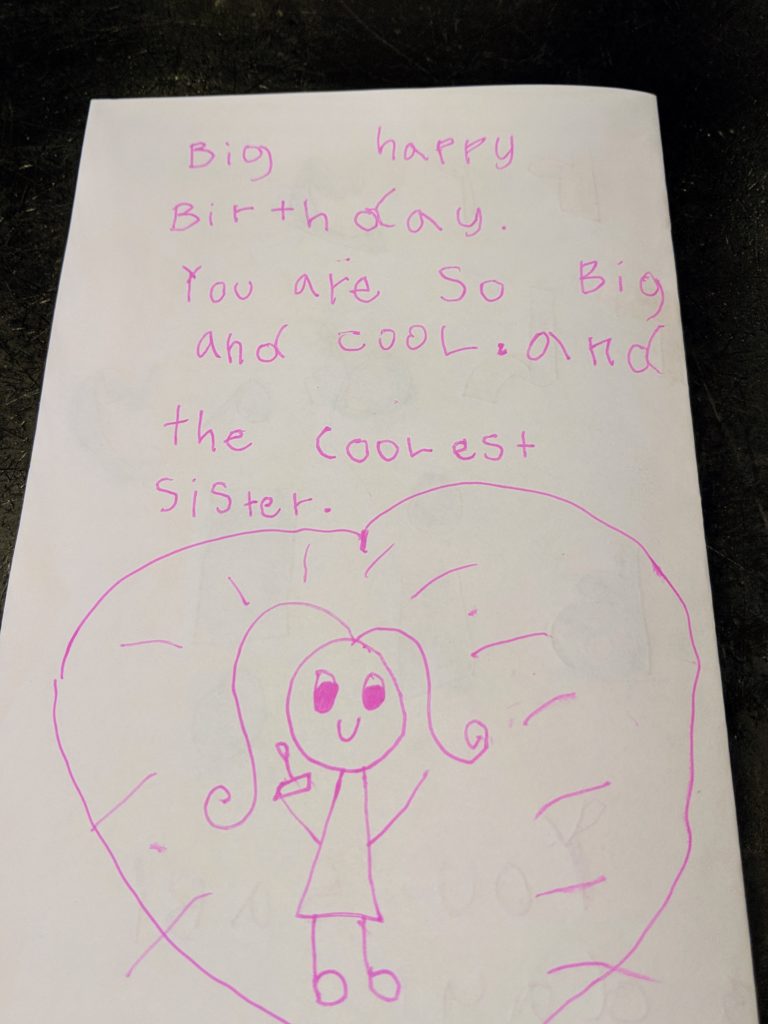 Big happy
Birthday.
You are so Big
and cool. and
the coolest
sister.